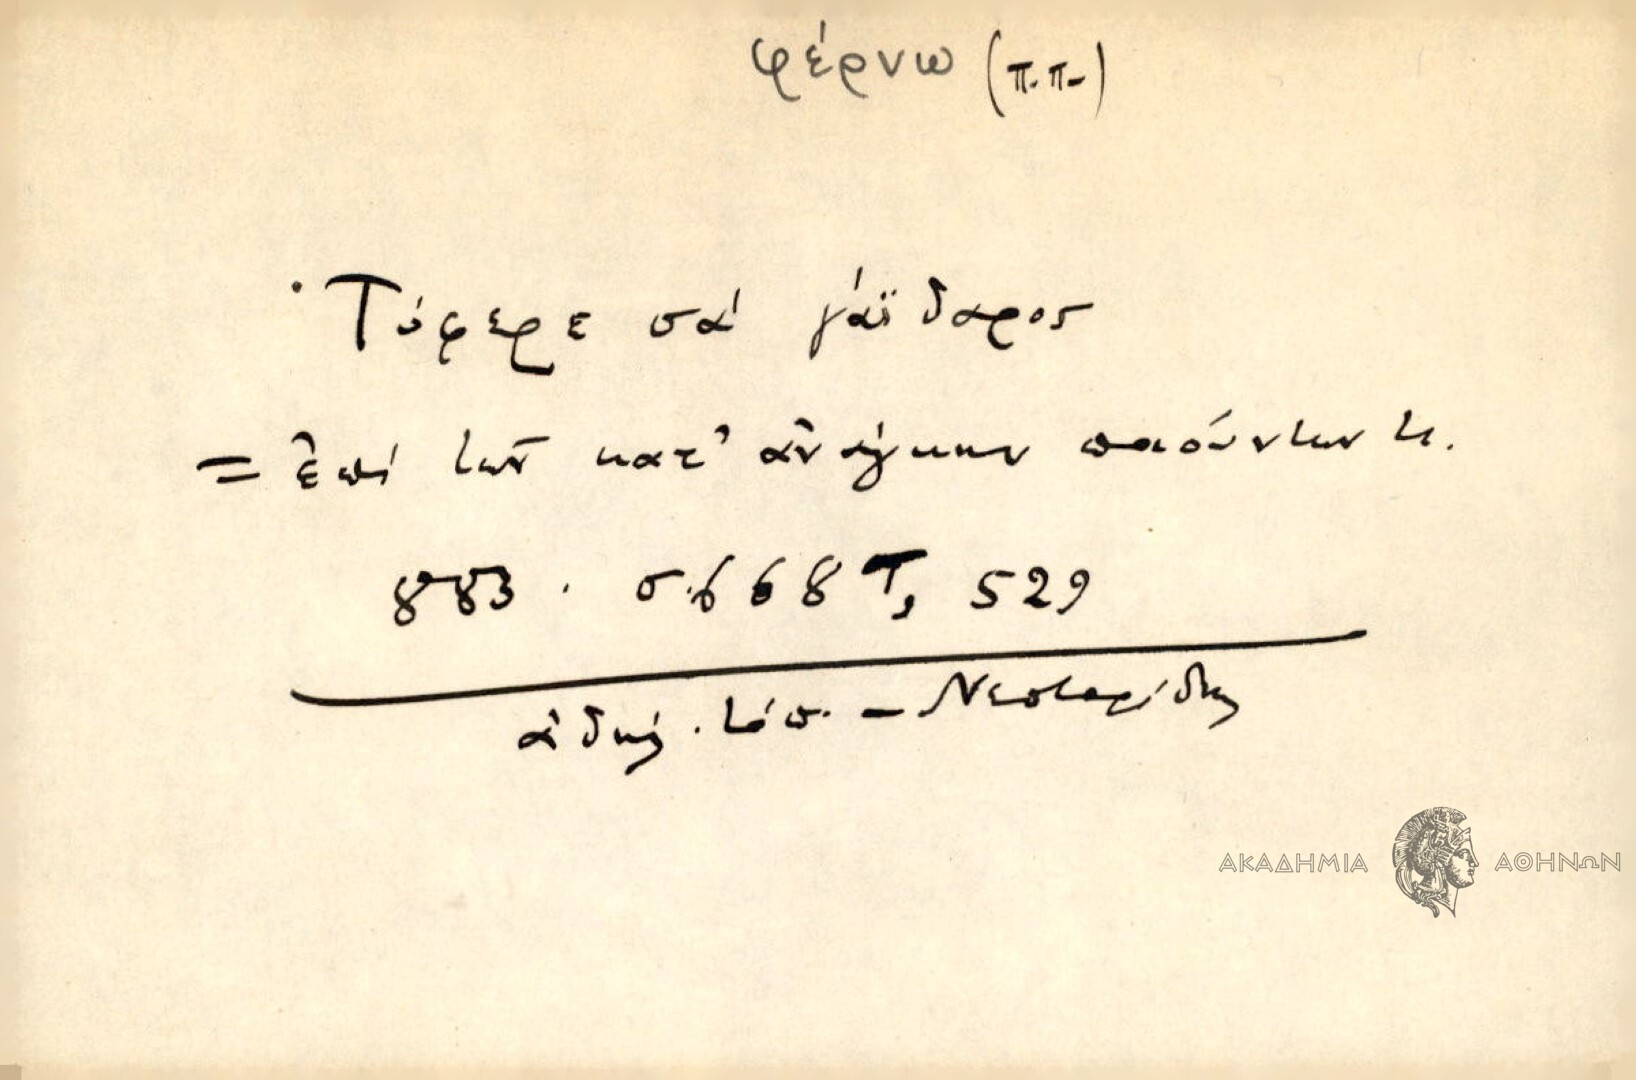 φέρνω (π.π.)
Τόφερε σά γάϊδαρος
= ἐπί τῶν κατ' ἀνάγκην ποιούντων τι.
883. σ. 668 Τ, 529
ἀδήλ. τόπ. - Νεστορίδης
ΑΚΑΔΗΜΙΑ ΑΘΗΝΩΝ